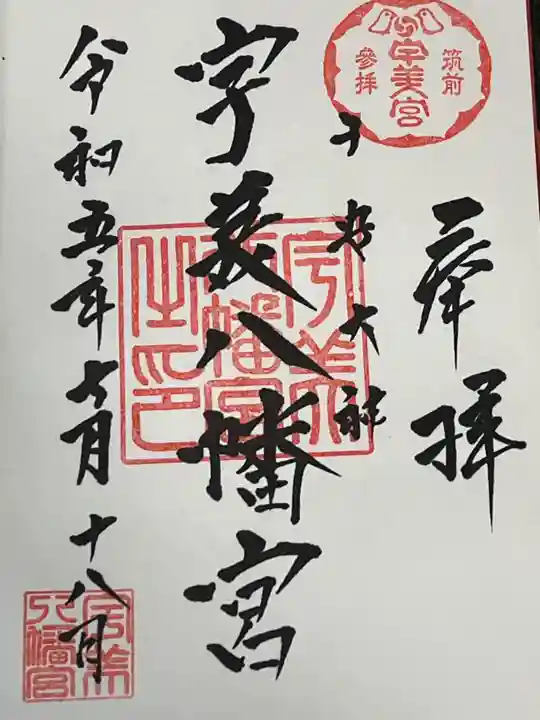 筑前
宇美宮
參拝
奉拝
子安大社
宇美八幡宮
宇美八幡宮之印
令和五年七月十八日
宇美八幡宮